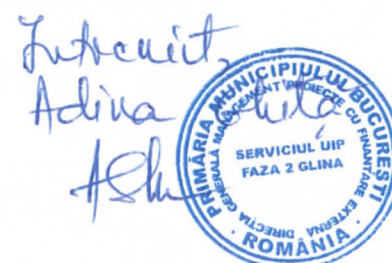 Întocmit,
Adina Ghiță
PRIMĂRIA MUNICIPIULUI BUCUREȘTI
DIRECȚIA GENERALĂ MANAGEMENT PROIECTE CU FINANȚARE EXTERNĂ
SERVICIUL UIP
FAZA 2 GLINA
ROMÂNIA